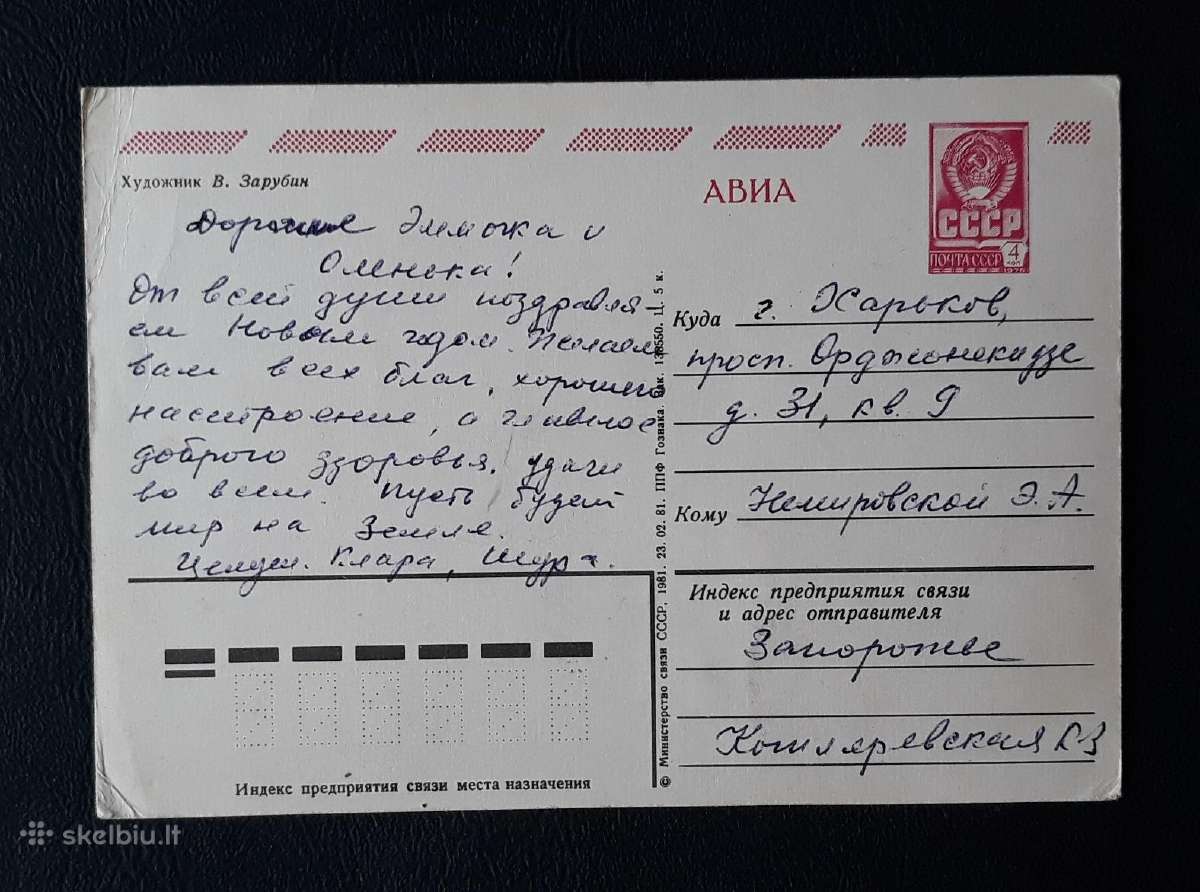 Художник В. Зарубин
АВИА
СССР
ПОЧТА СССР
4
КОП
1976
Дорогие Эммочка и
Оленька!
От всей души поздравля-
ем Новым годом. Желаем
вам всех благ, хорошего
настроение, а главное
доброго здоровья, удачи
во всем. Пусть будет
мир на Земле.
Целуем. Клара, Шура.
Куда г. Харьков,
просп. Орджоникидзе
д. 31, кв. 9
Кому Немировской Э. А.
Индекс предприятия связи
и адрес отправителя
Запорожье
© Министерство связи СССР, 1981. 23. 02. 81. ППФ Гознака. Зак. Ц. 5 к.
Индекс предприятия связи места назначения
skelbiu.lt